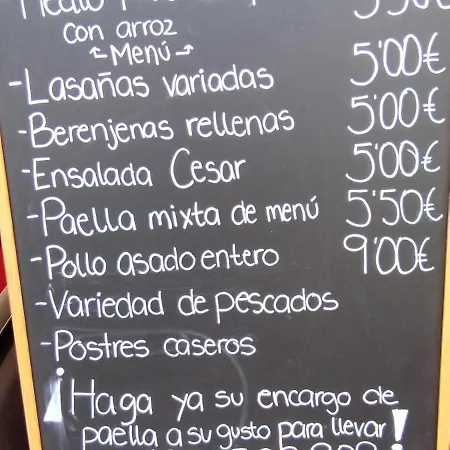 con arroz
←Menú→
-Lasañas variadas 5'00€
-Berenjenas rellenas 5'00€
-Ensalada Cesar 5'00€
-Paella mixta de menú 5'50€
-Pollo asado entero 9'00€
-Variedad de pescados
-Postres caseros
¡Haga ya su encargo de
paella a su gusto para llevar!